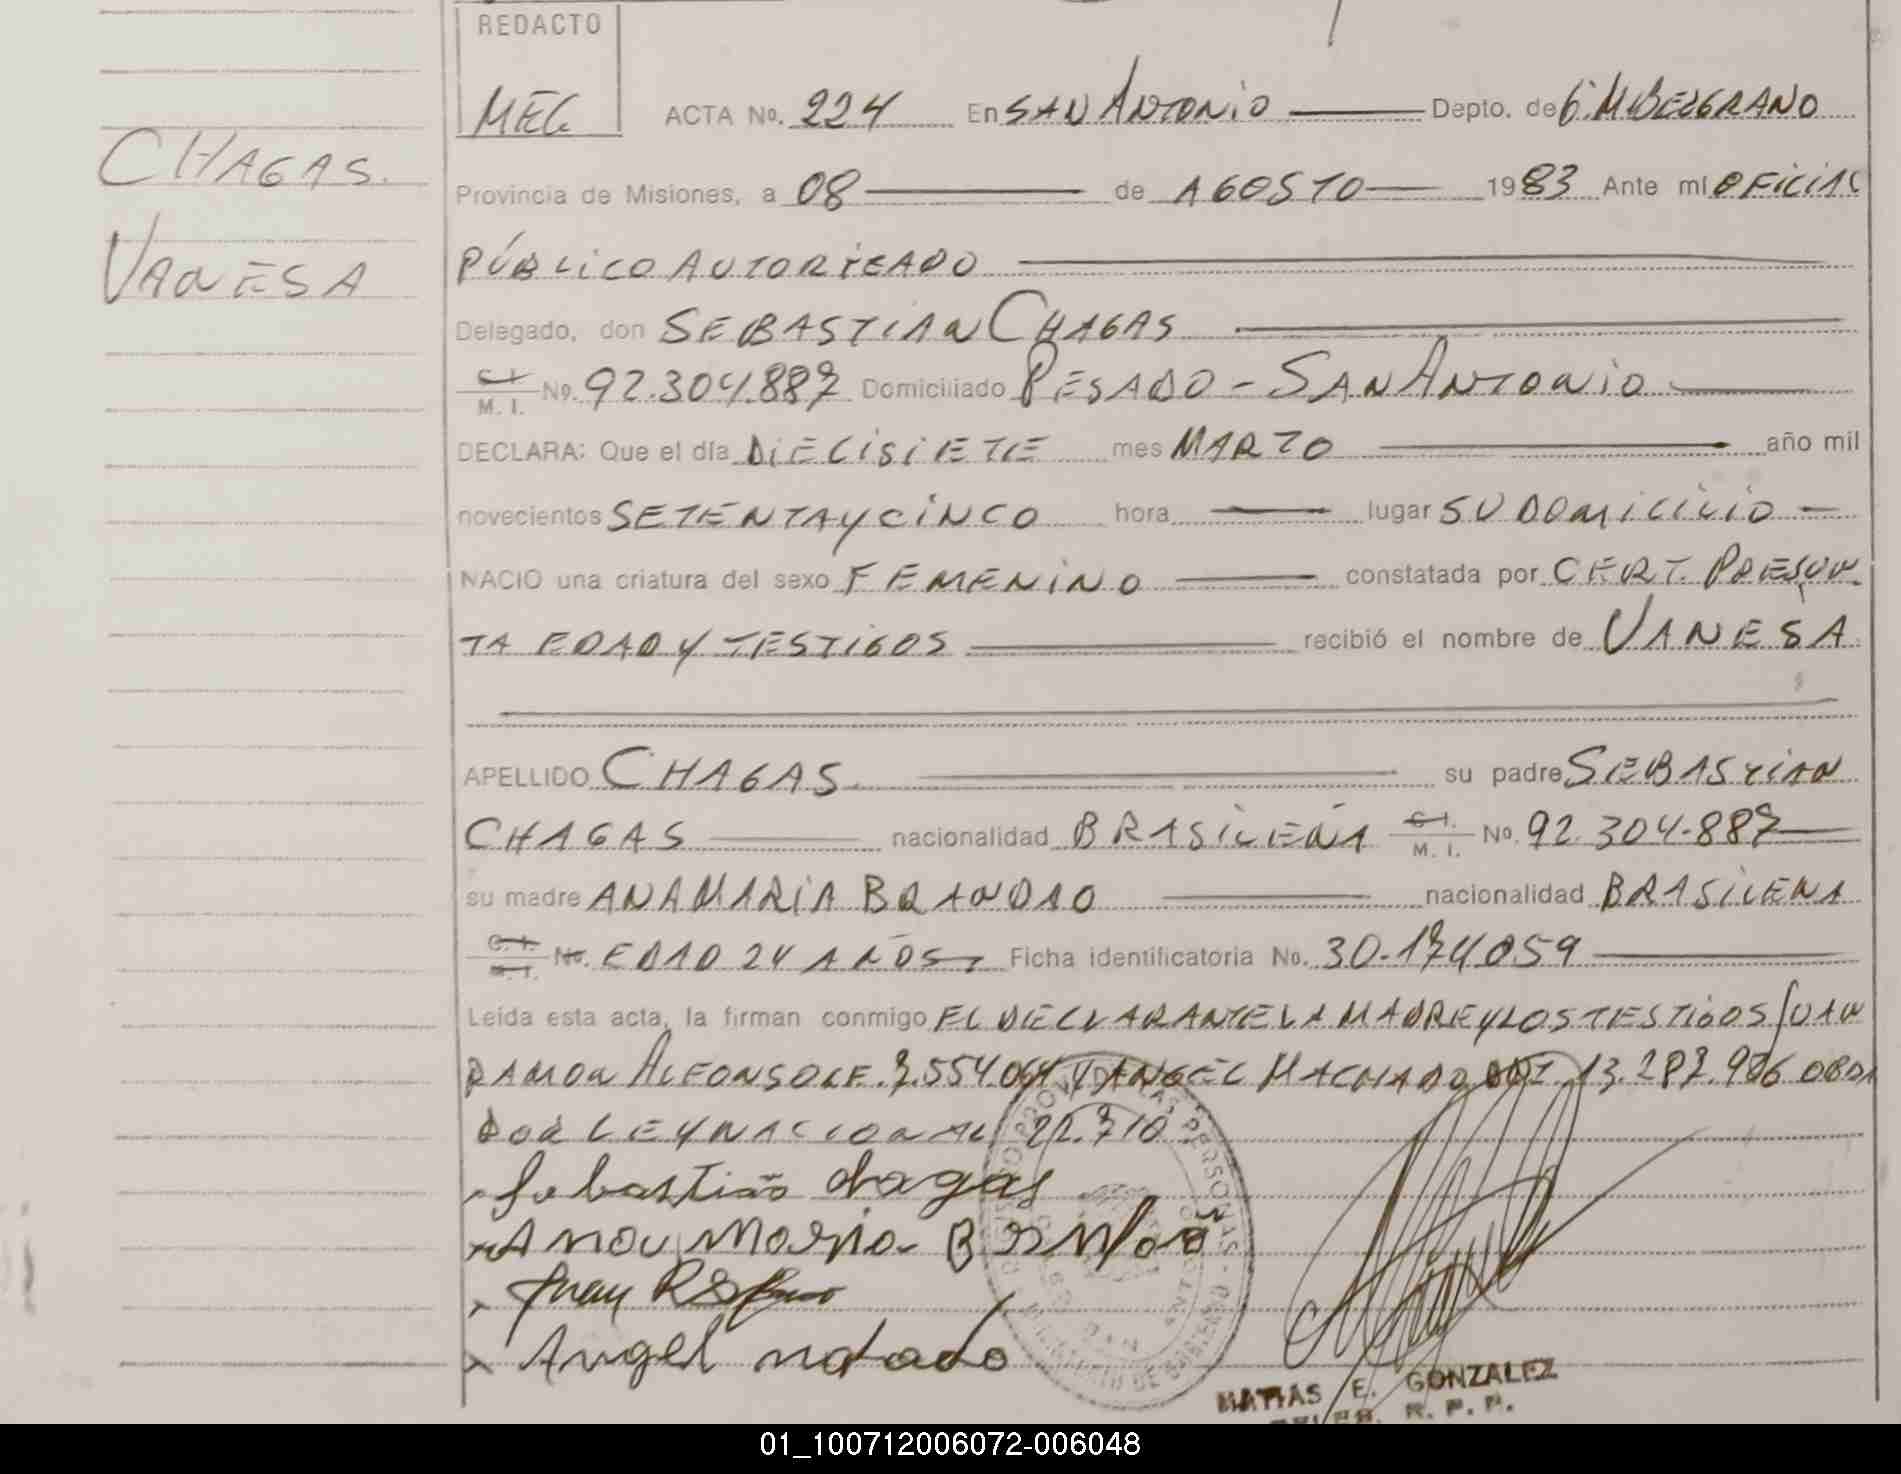 REDACTO
MEG
CHAGAS.
VANESA
ACTA No. 224 En SAN ANTONIO Depto. de G. M. BELGRANO
Provincia de Misiones, a 08 de AGOSTO 1983 Ante mí OFICIAL
PÚBLICO AUTORIZADO
Delegado, don SEBASTIAN CHAGAS
C. I. M. I. No. 92.304.887 Domiciliado PESADO - SAN ANTONIO
DECLARA: Que el día DIECISIETE mes MARZO año mil
novecientos SETENTA y CINCO hora lugar SU DOMICILIO
NACIO una criatura del sexo FEMENINO constatada por CERT. PRESUN
TA EDAD Y TESTIGOS recibió el nombre de VANESA
APELLIDO CHAGAS su padre SEBASTIAN
CHAGAS nacionalidad BRASILEÑA C. I. M. I. No. 92.304.887
su madre ANA MARIA BRANDAO nacionalidad BRASILENA
C. I. M. I. No. EDAD 24 AÑOS Ficha identificatoria No. 30.174.059
Leída esta acta, la firman conmigo EL DECLARANTE LA MADRE Y LOS TESTIGOS JUAN
RAMON ALFONSO L.E. 7.554.064 Y ANGEL MACHADO DNI 13.287.976
POR LEY NACIONAL 22.710
Sebastião chagas
Ana Maria
Juan
Angel
MATIAS E. GONZALEZ
R. P. P.
01_100712006072-006048